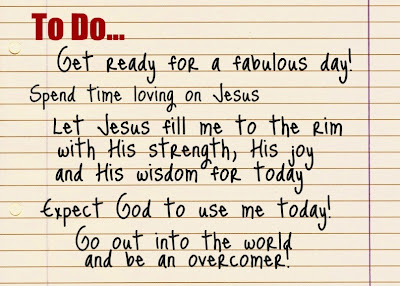 To Do...
Get ready for a fabulous day!
Spend time loving on Jesus
Let Jesus fill me to the rim
with His strength, His joy
and His wisdom for today
Expect God to use me today!
Go out into the world
and be an overcomer!